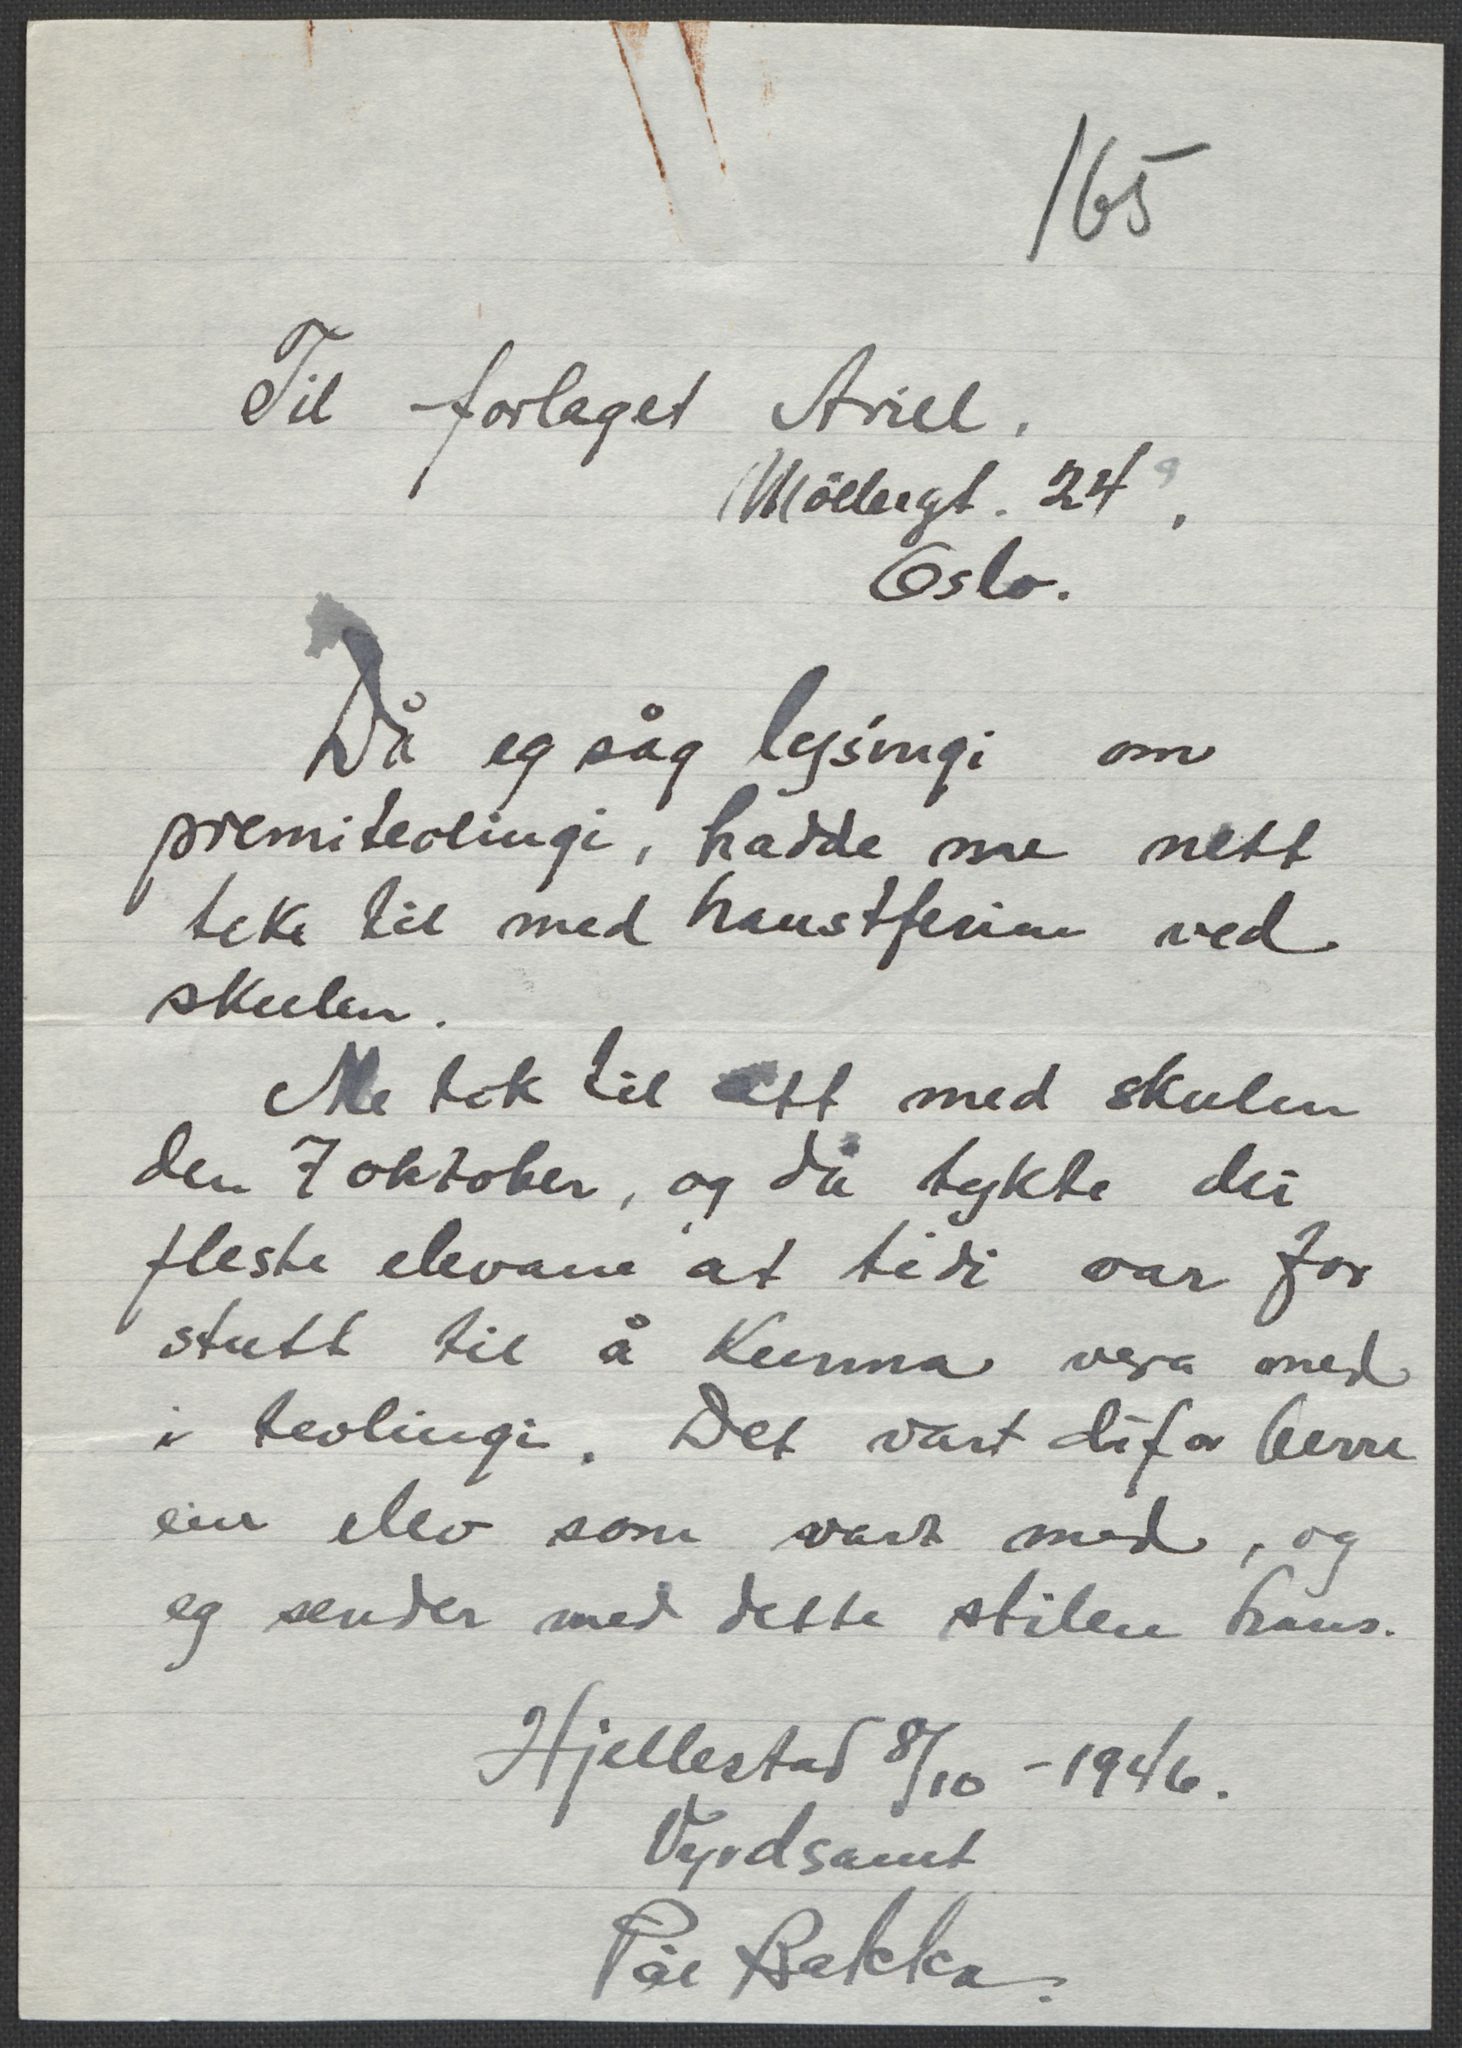 165
Til forlaget Ariel.
Möllergt. 24a,
Oslo.
Då eg såg lysingi om
premitevlingi, hadde me nett
teke til med haustferien ved
skulen.
Me tok til att med skulen
den 7 oktober, og då tykte dei
fleste elevane at tidi var for
stutt til å kunna vera med
i tevlingi. Det vart difor berre
ein elev som vart med, og
eg sender med dette stilen hans.
Hjellestad 8/10 - 1946.
Vyrdsamt
Pål Bakka.